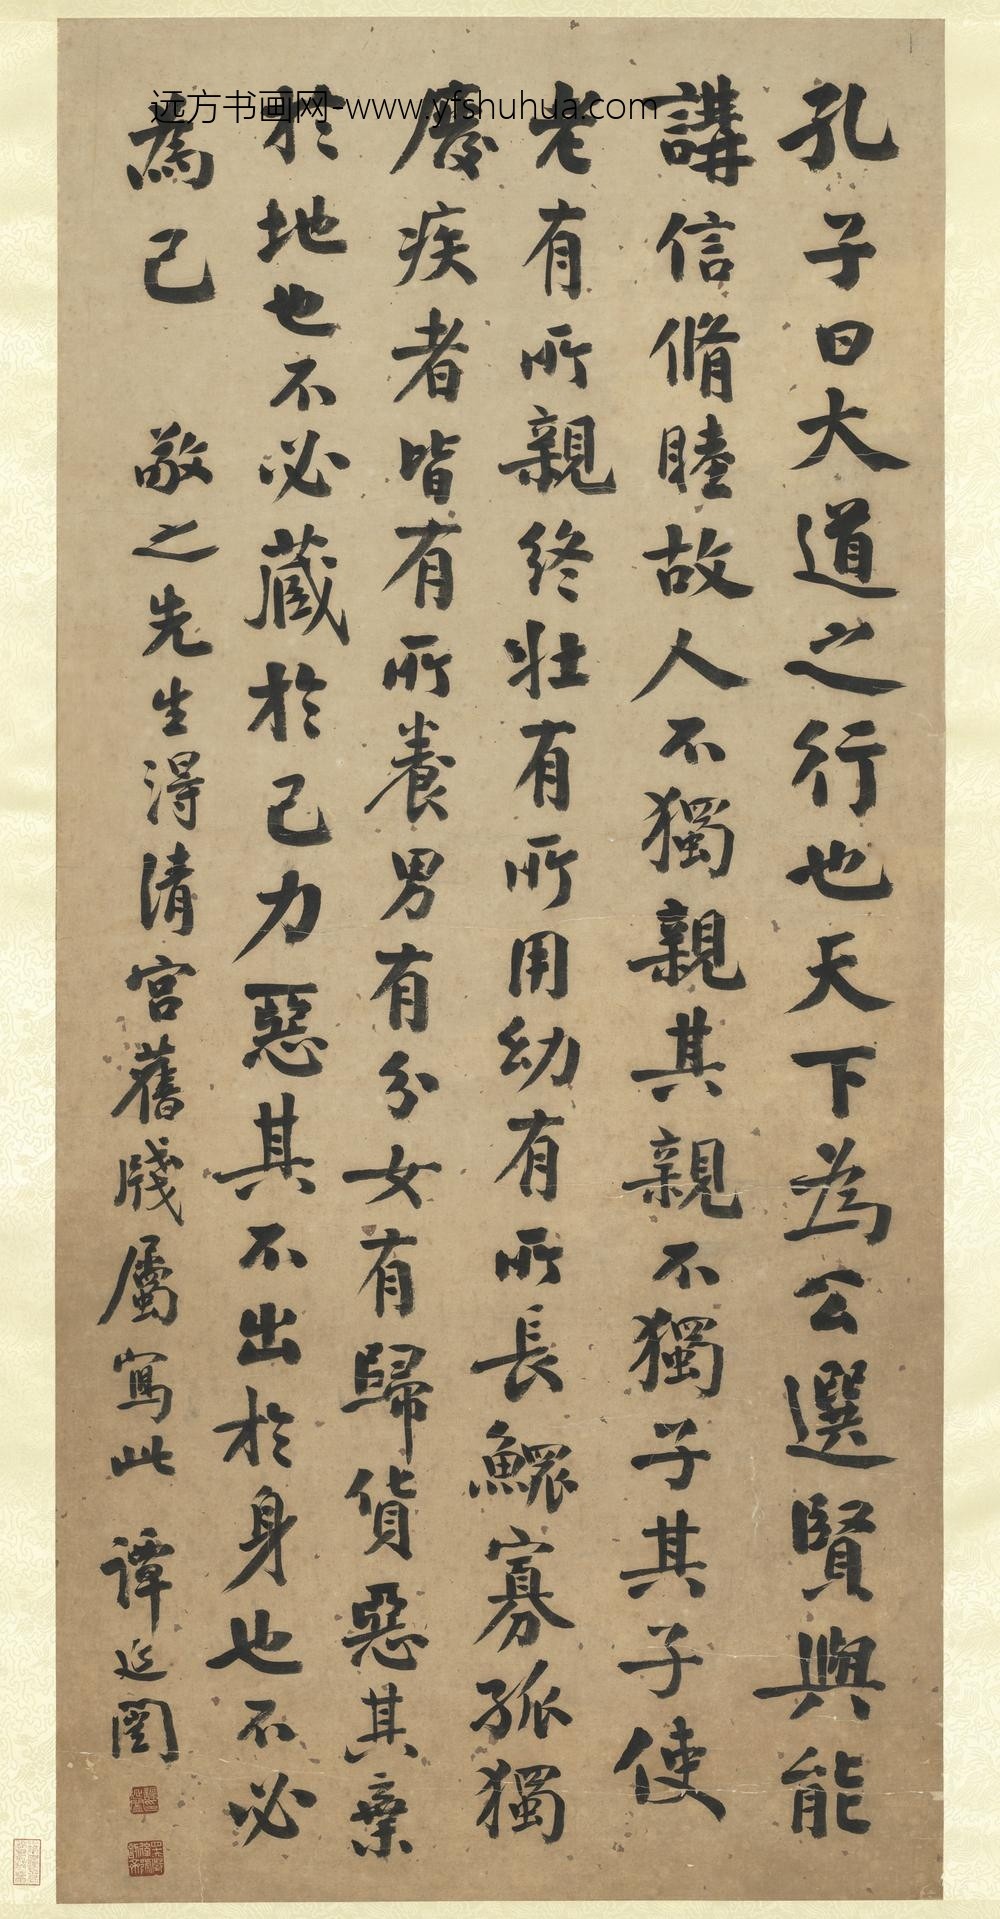 远方书画网-www.yfshuhua.com
孔子曰大道之行也天下為公選賢與能
講信脩睦故人不獨親其親不獨子其子使
老有所親終壯有所用幼有所長鰥寡孤獨
廢疾者皆有所養男有分女有歸貨惡其棄
於地也不必藏於己力惡其不出於身也不必
為己 敬之先生得清宮舊牋屬寫此 譚延闓